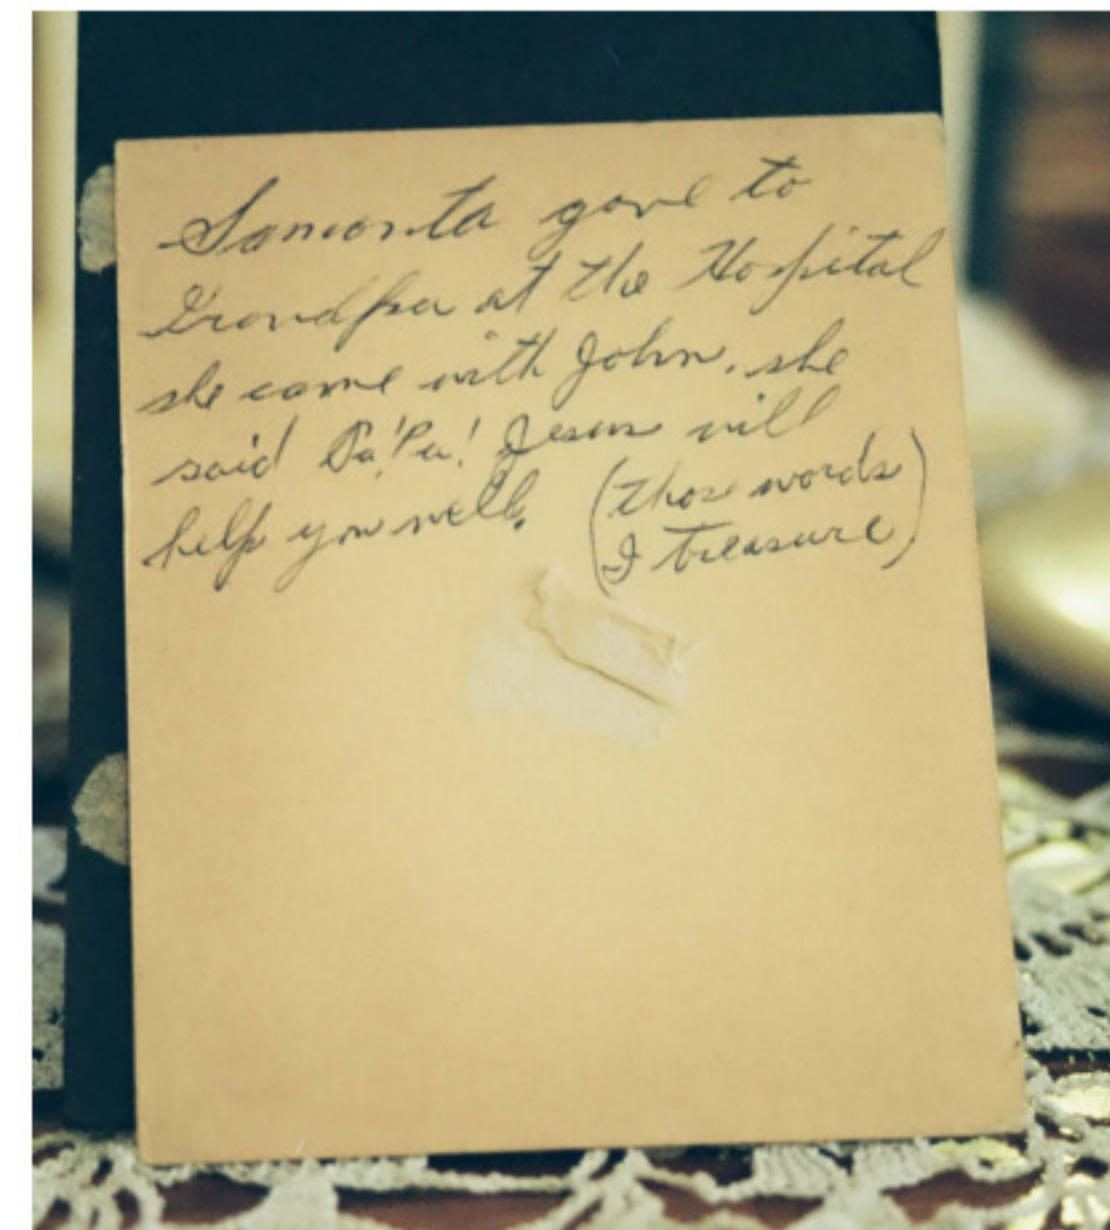 Samanta gave to
Grandpa at the Hospital
she came with John. she
said Pa'Pa! Jesus will
help you well. (thos words
I treasure)